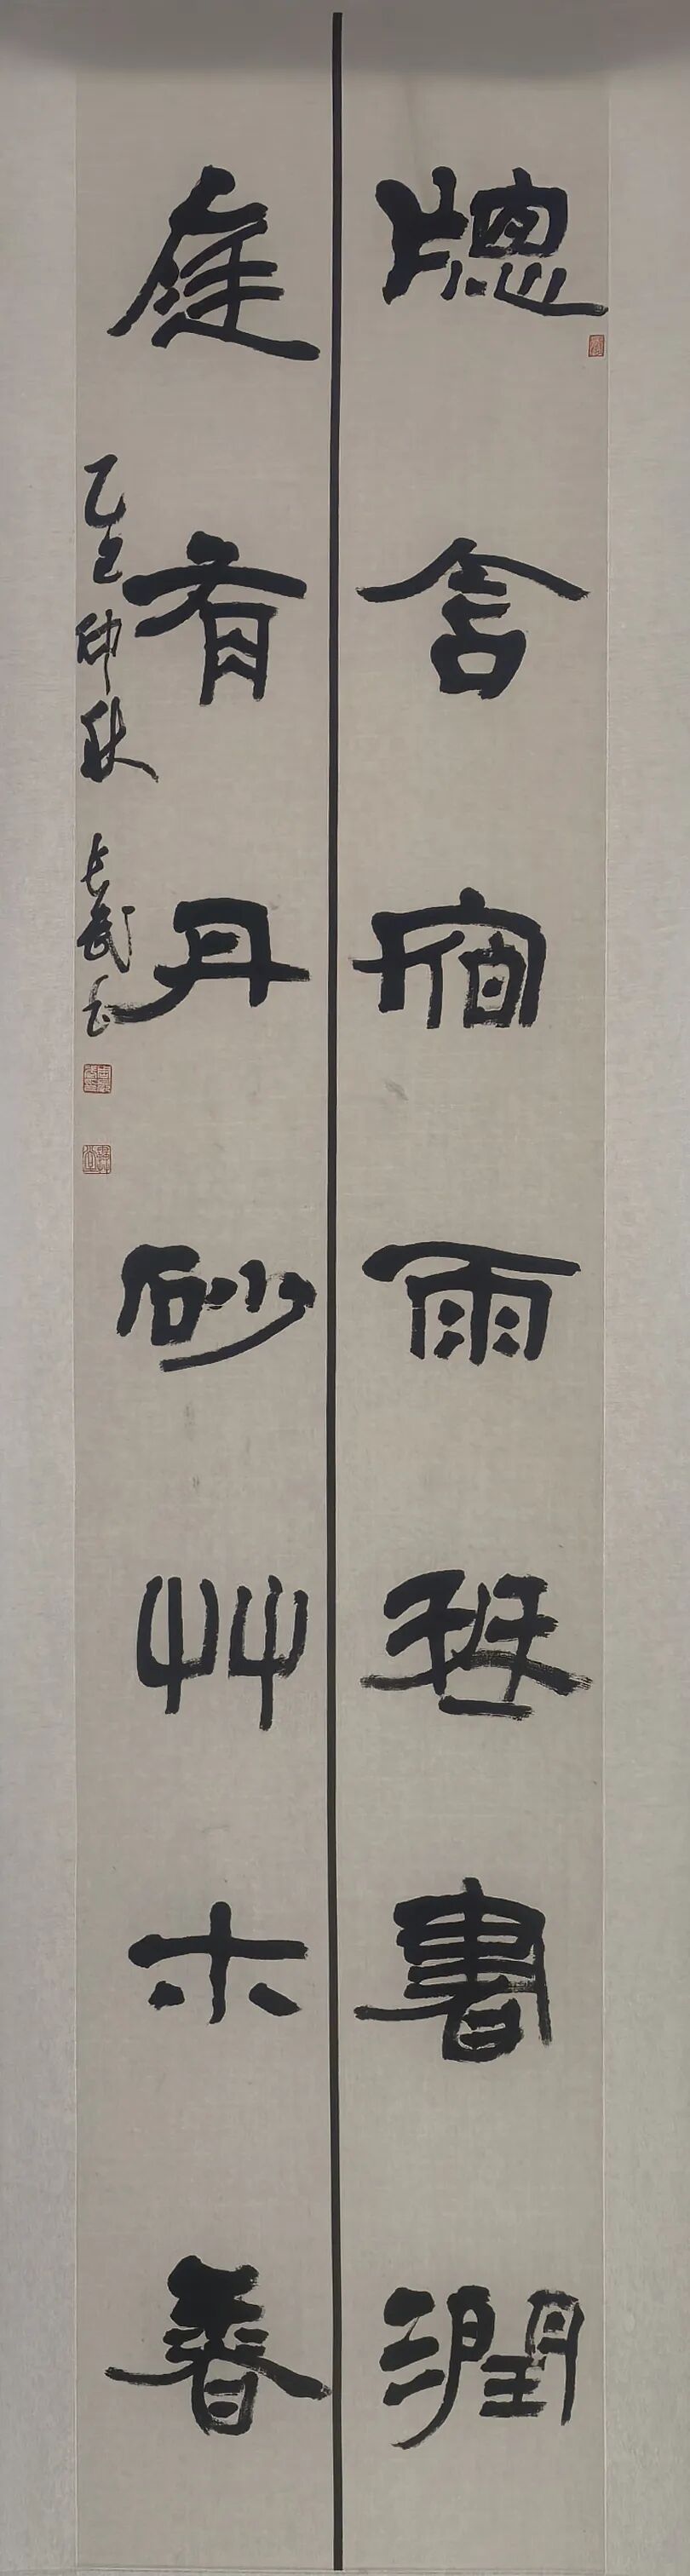 牕含宿雨琴書潤
庭有丹砂艸木香
乙巳仲秋 长武